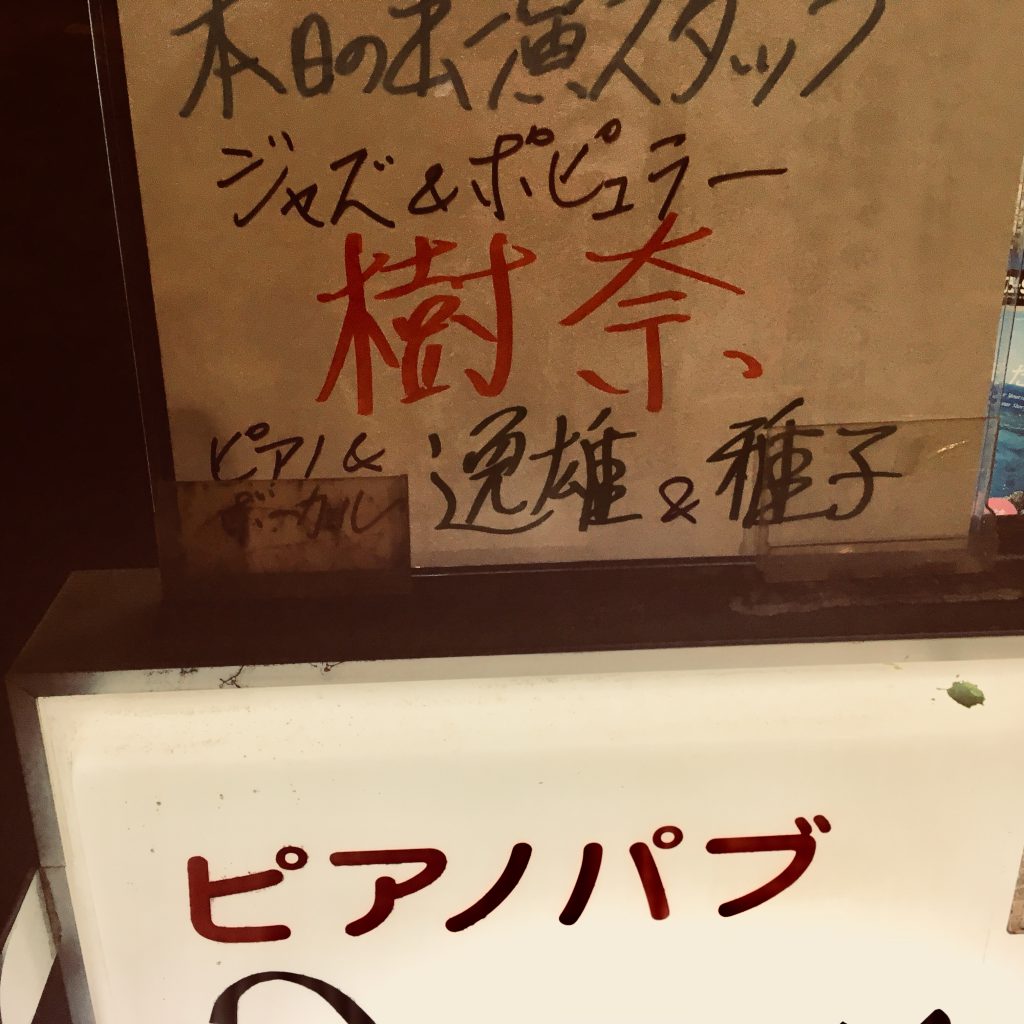 本日の出演スタッフ
ジャズ&ポピュラー
樹奈
ピアノ&
ボーカル
逸雄&種子
ピアノパブ